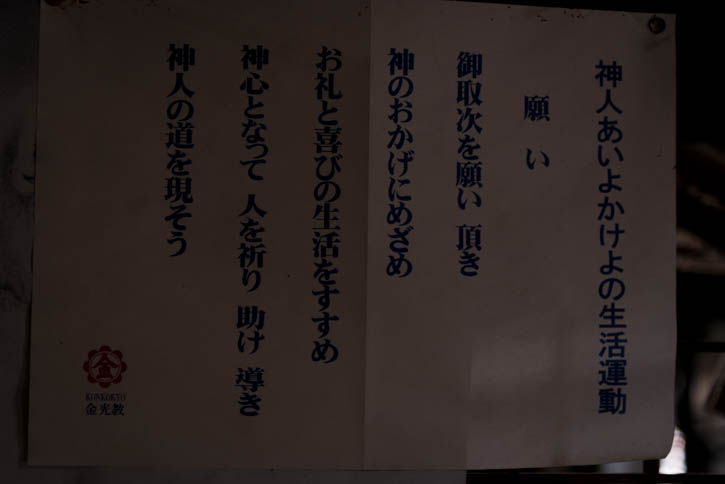 神人あいよかけよの生活運動
願い
御取次を願い 頂き
神のおかげにめざめ
お礼と喜びの生活をすすめ
神心となって 人を祈り 助け 導き
神人の道を現そう
金
KONKOKYO
金光教